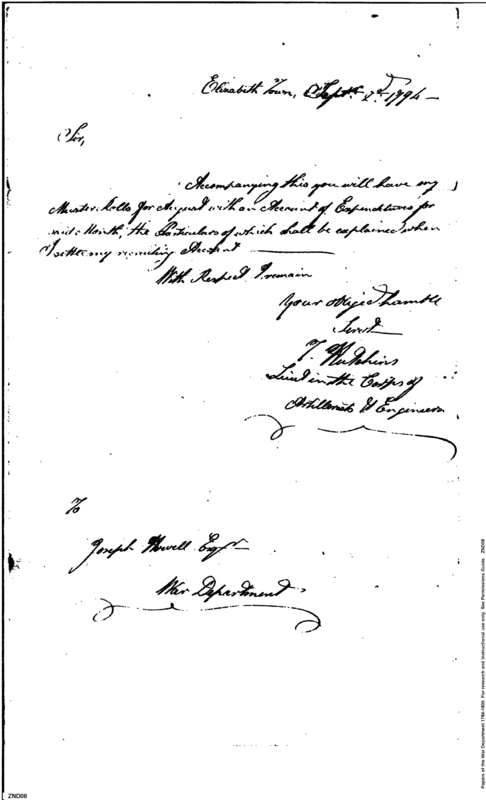 Elizabeth Town, Septr. 2d. 1794 —
Sir,
Accompanying this you will have my
Muster Rolls for August with an Account of Expenditures for
said Month, the Particulars of which shall be explained when
I settle my recruiting Account
With Respect I remain
Your obliged humble
Servt
T. Hutchins
Lieut in the Corps of
Artillerists & Engineers
To
Joseph Howell Esqr.
War Department.
Papers of the War Department 1784-1800. For research and instructional use only. See Permissions Guide. ZND08
ZND08